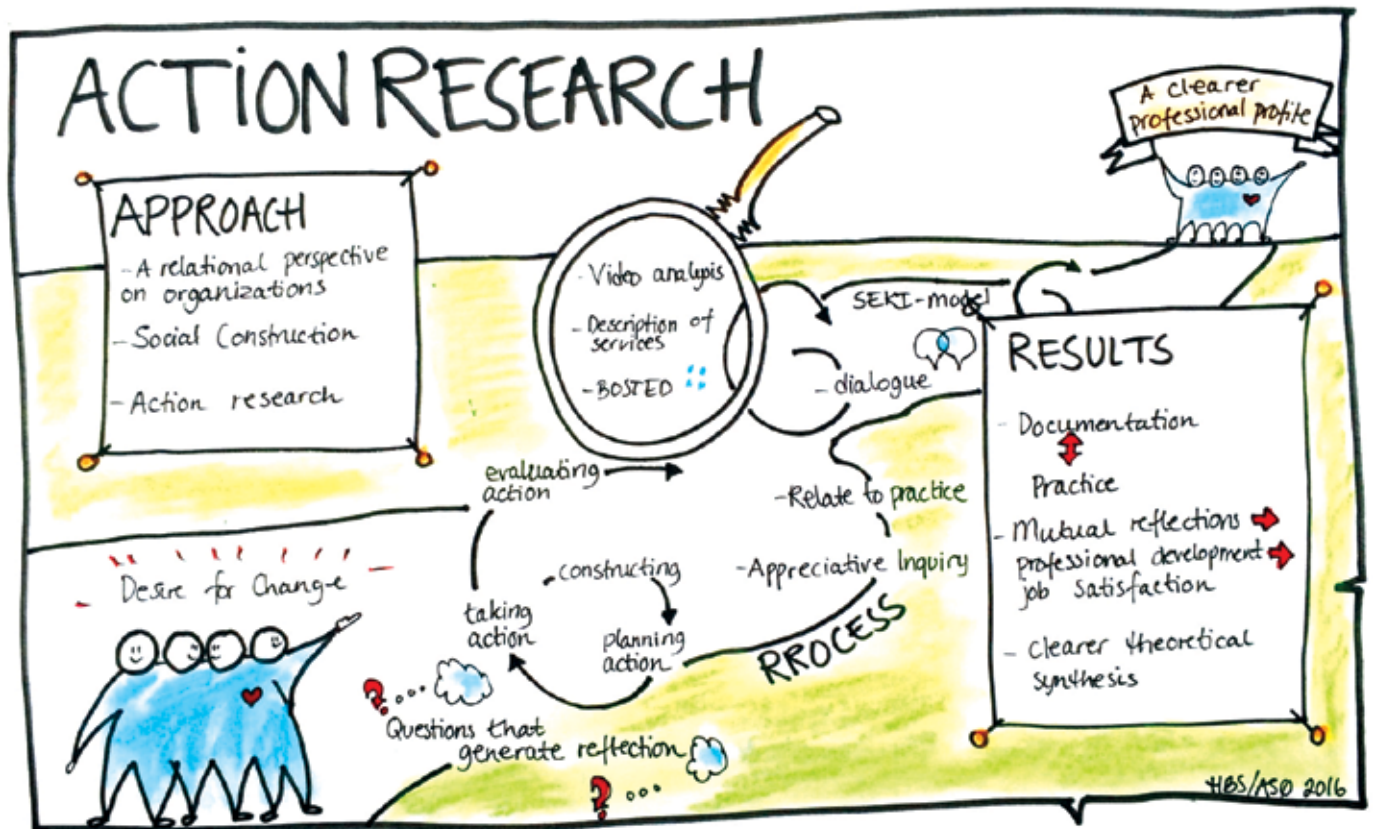 ACTION RESEARCH
A clearer
professional profile
APPROACH
- A relational perspective
on organizations
- Social Construction
- Action research
- Video analysis
- Description of
services
- BOSTED
SEKI-model
- dialogue
- Relate to practice
- Appreciative Inquiry
PROCESS
evaluating
action
constructing
planning
action
taking
action
Desire for Change
Questions that
generate reflection
RESULTS
- Documentation
Practice
- Mutual reflections
professional development
job satisfaction
- Clearer theoretical
synthesis
HBS/ASØ 2016